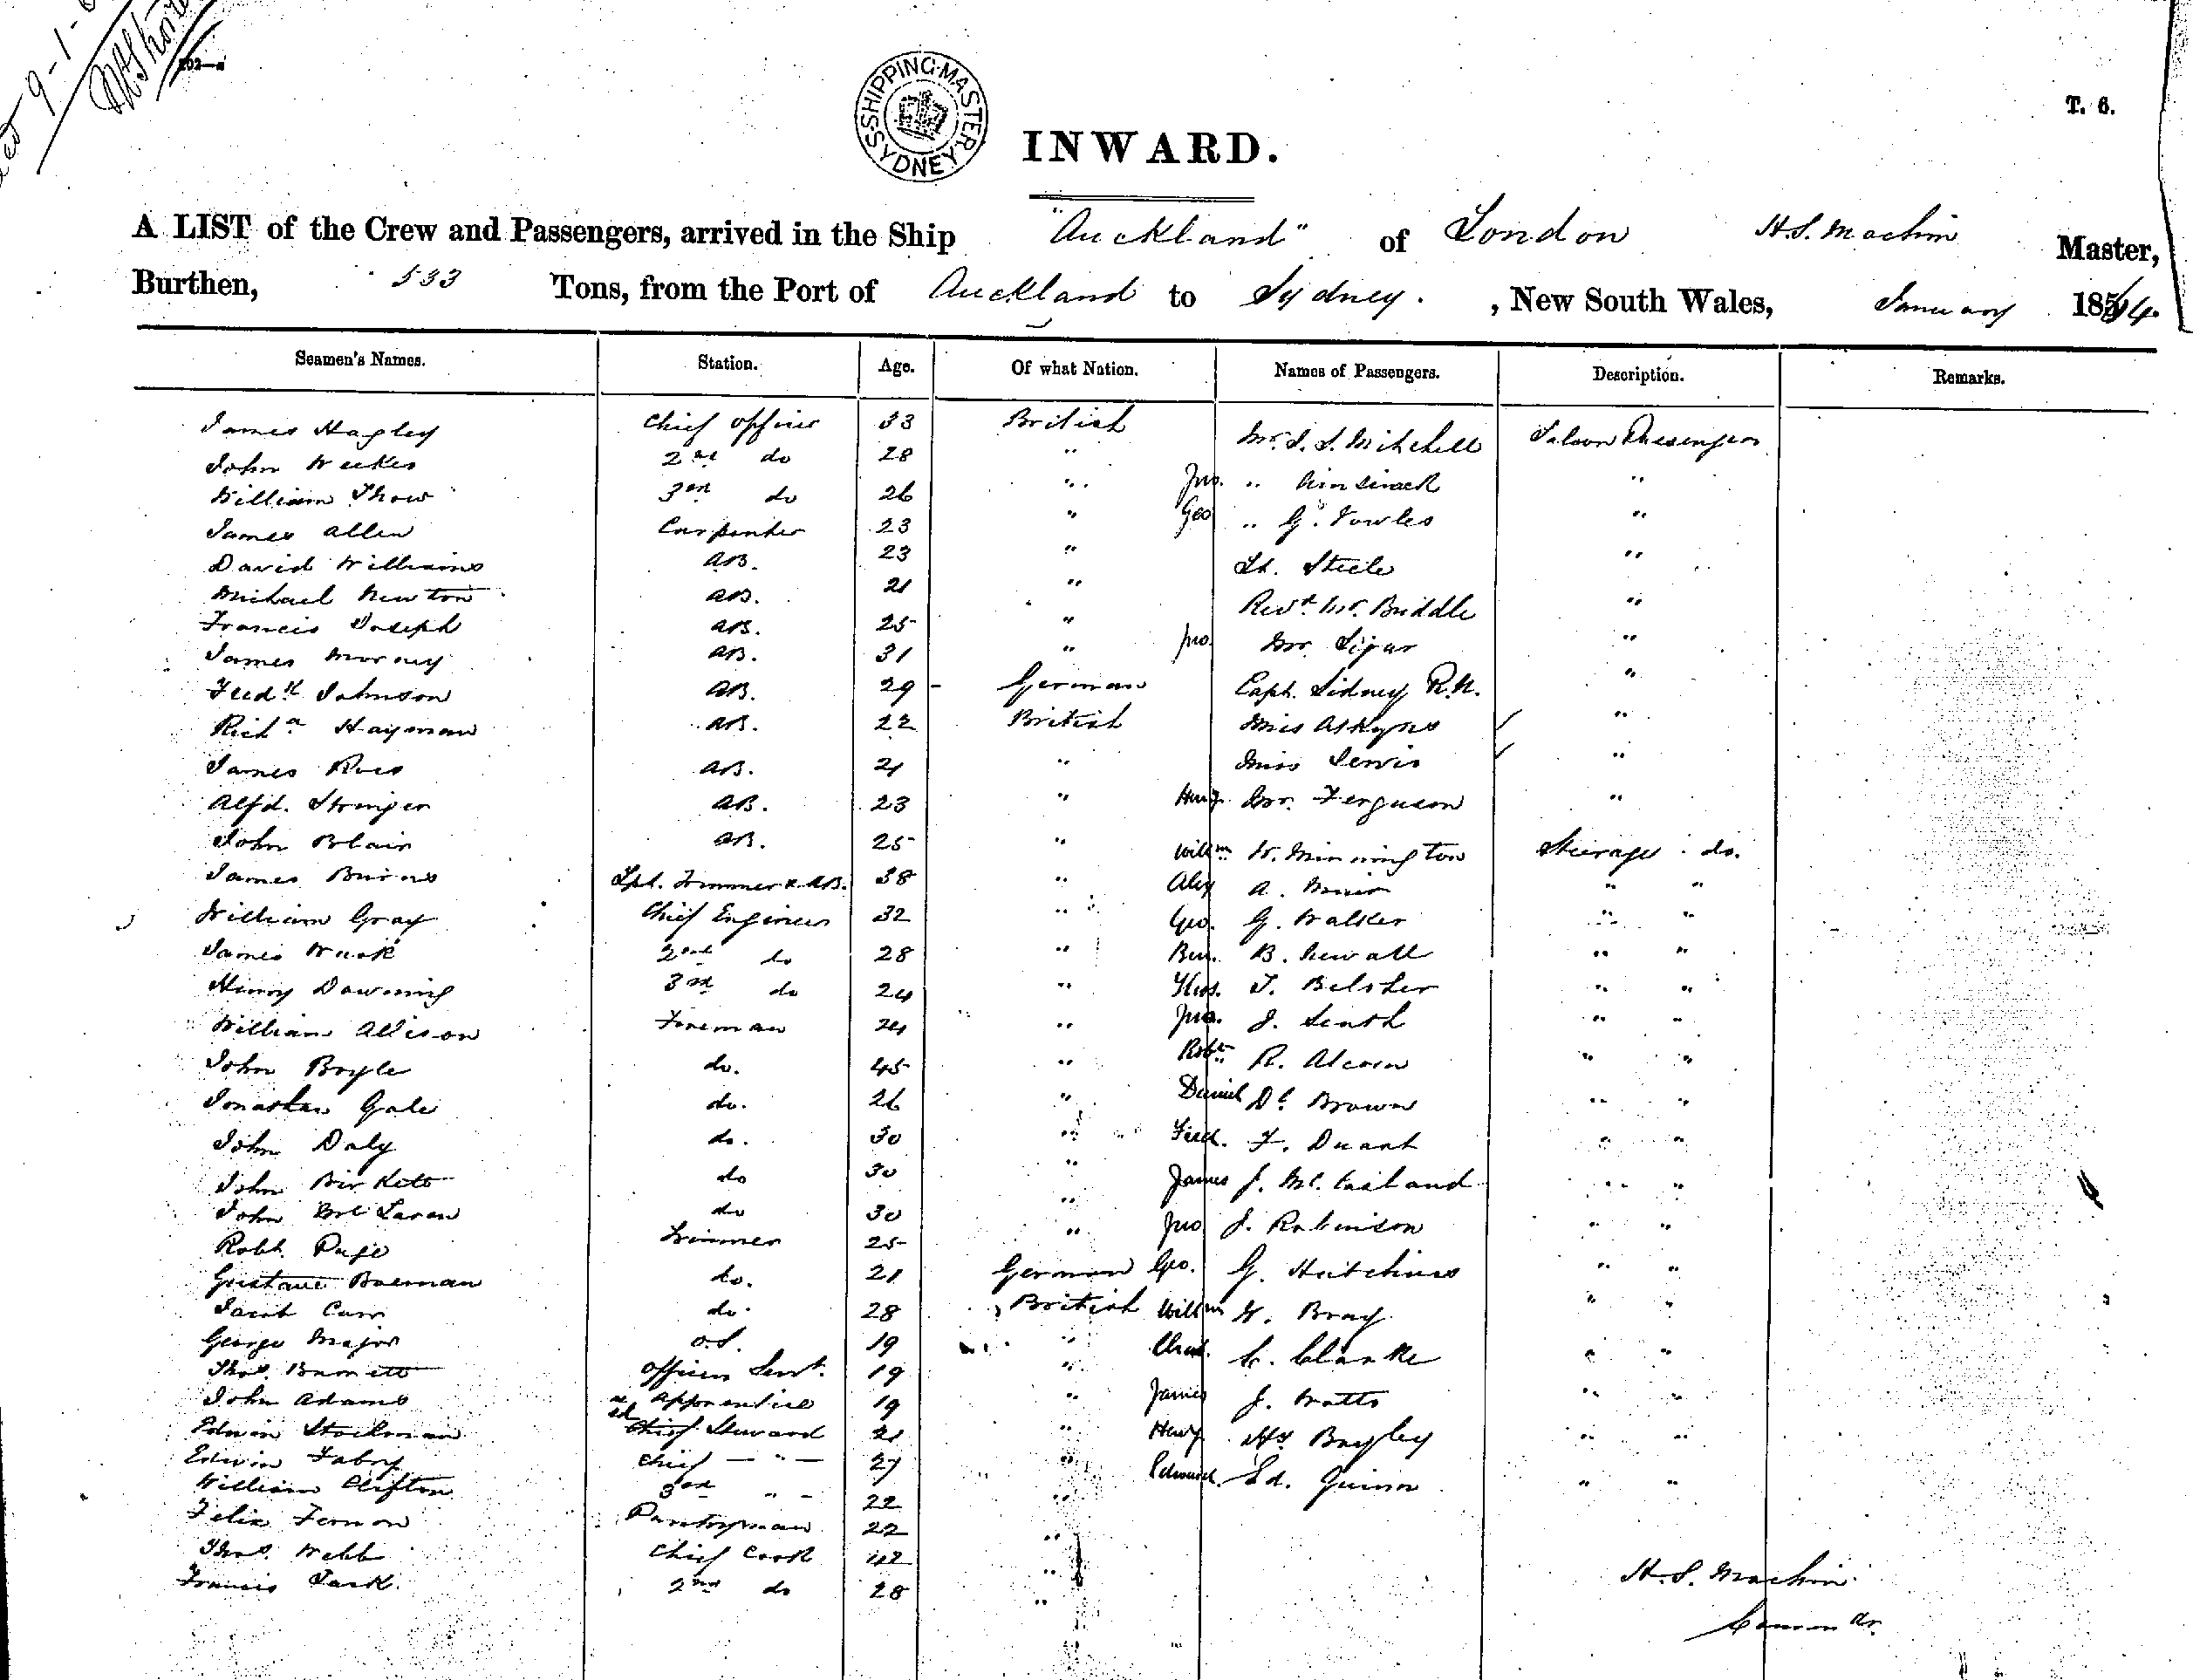 9-1-6
203—a
SHIPPING MASTER SYDNEY
T. 6.
INWARD.
A LIST of the Crew and Passengers, arrived in the Ship "Auckland" of London H.S. Machin Master,
Burthen, 533 Tons, from the Port of Auckland to Sydney. , New South Wales, January 1864.
Seamen's Names. Station. Age. Of what Nation. Names of Passengers. Description. Remarks.
James Hagley Chief officer 33 British Mr. Mitchell Saloon Passengers
John Weekes 2nd do 28 " Jno. " "
William Thow 3rd do 26 " Geo " G. Fowles "
James Allen Carpenter 23 " Lt. Steele "
David Williams AB. 23 " Revd. Mr. Buddle "
Michael Newton AB. 21 " Jno. Mr. "
Francis Joseph AB. 25 " Capt. Sidney R.N. "
James AB. 31 " Miss "
Fredk Johnson AB. 29 - German Miss "
Richd Hayman AB. 22 British Henry Mr. Ferguson "
James AB. 21 " Willm W. Minnington Steerage do.
Alfd. Stringer AB. 23 " Alex A. " "
John Blair AB. 25 " Geo. G. Walker " "
James Burns Lpt. Trimmer & AB. 38 " Ben. B. Newall " "
William Gray Chief Engineer 32 " Thos. T. Belsher " "
James 2nd do 28 " Jno. J. " "
Henry Downing 3rd do 24 " Robt R. Alcorn " "
William Allison Fireman 24 " Daniel Dl Brown " "
John Boyle do. 45 " Fred. F. " "
Jonathan Gale do. 26 " James J. " "
John Daly do. 30 " Jno J. Robinson " "
John Birkett do 30 " Geo. G. Hutchins " "
John McLaren do 30 " Willm W. Bray " "
Robt. Page Trimmer 25 " Chas. C. Clarke " "
Gustave do. 21 German James J. Watts " "
Jacob Carr do. 28 British Henry Hy Bayley " "
George Major O.S. 19 " Edward. Ed. Quinn " "
Thos. Burnett officers Servt. 19 "
John Adams apprentice 19 "
Edwin 2d Chief Steward 21 "
Edwin Chief — " — 27 "
William Clifton 3rd " - 22 "
Felix Pantryman 22 "
Thos. Webb Chief Cook 42 "
Francis 2nd do 28 "
H.S. Machin
Commdr.